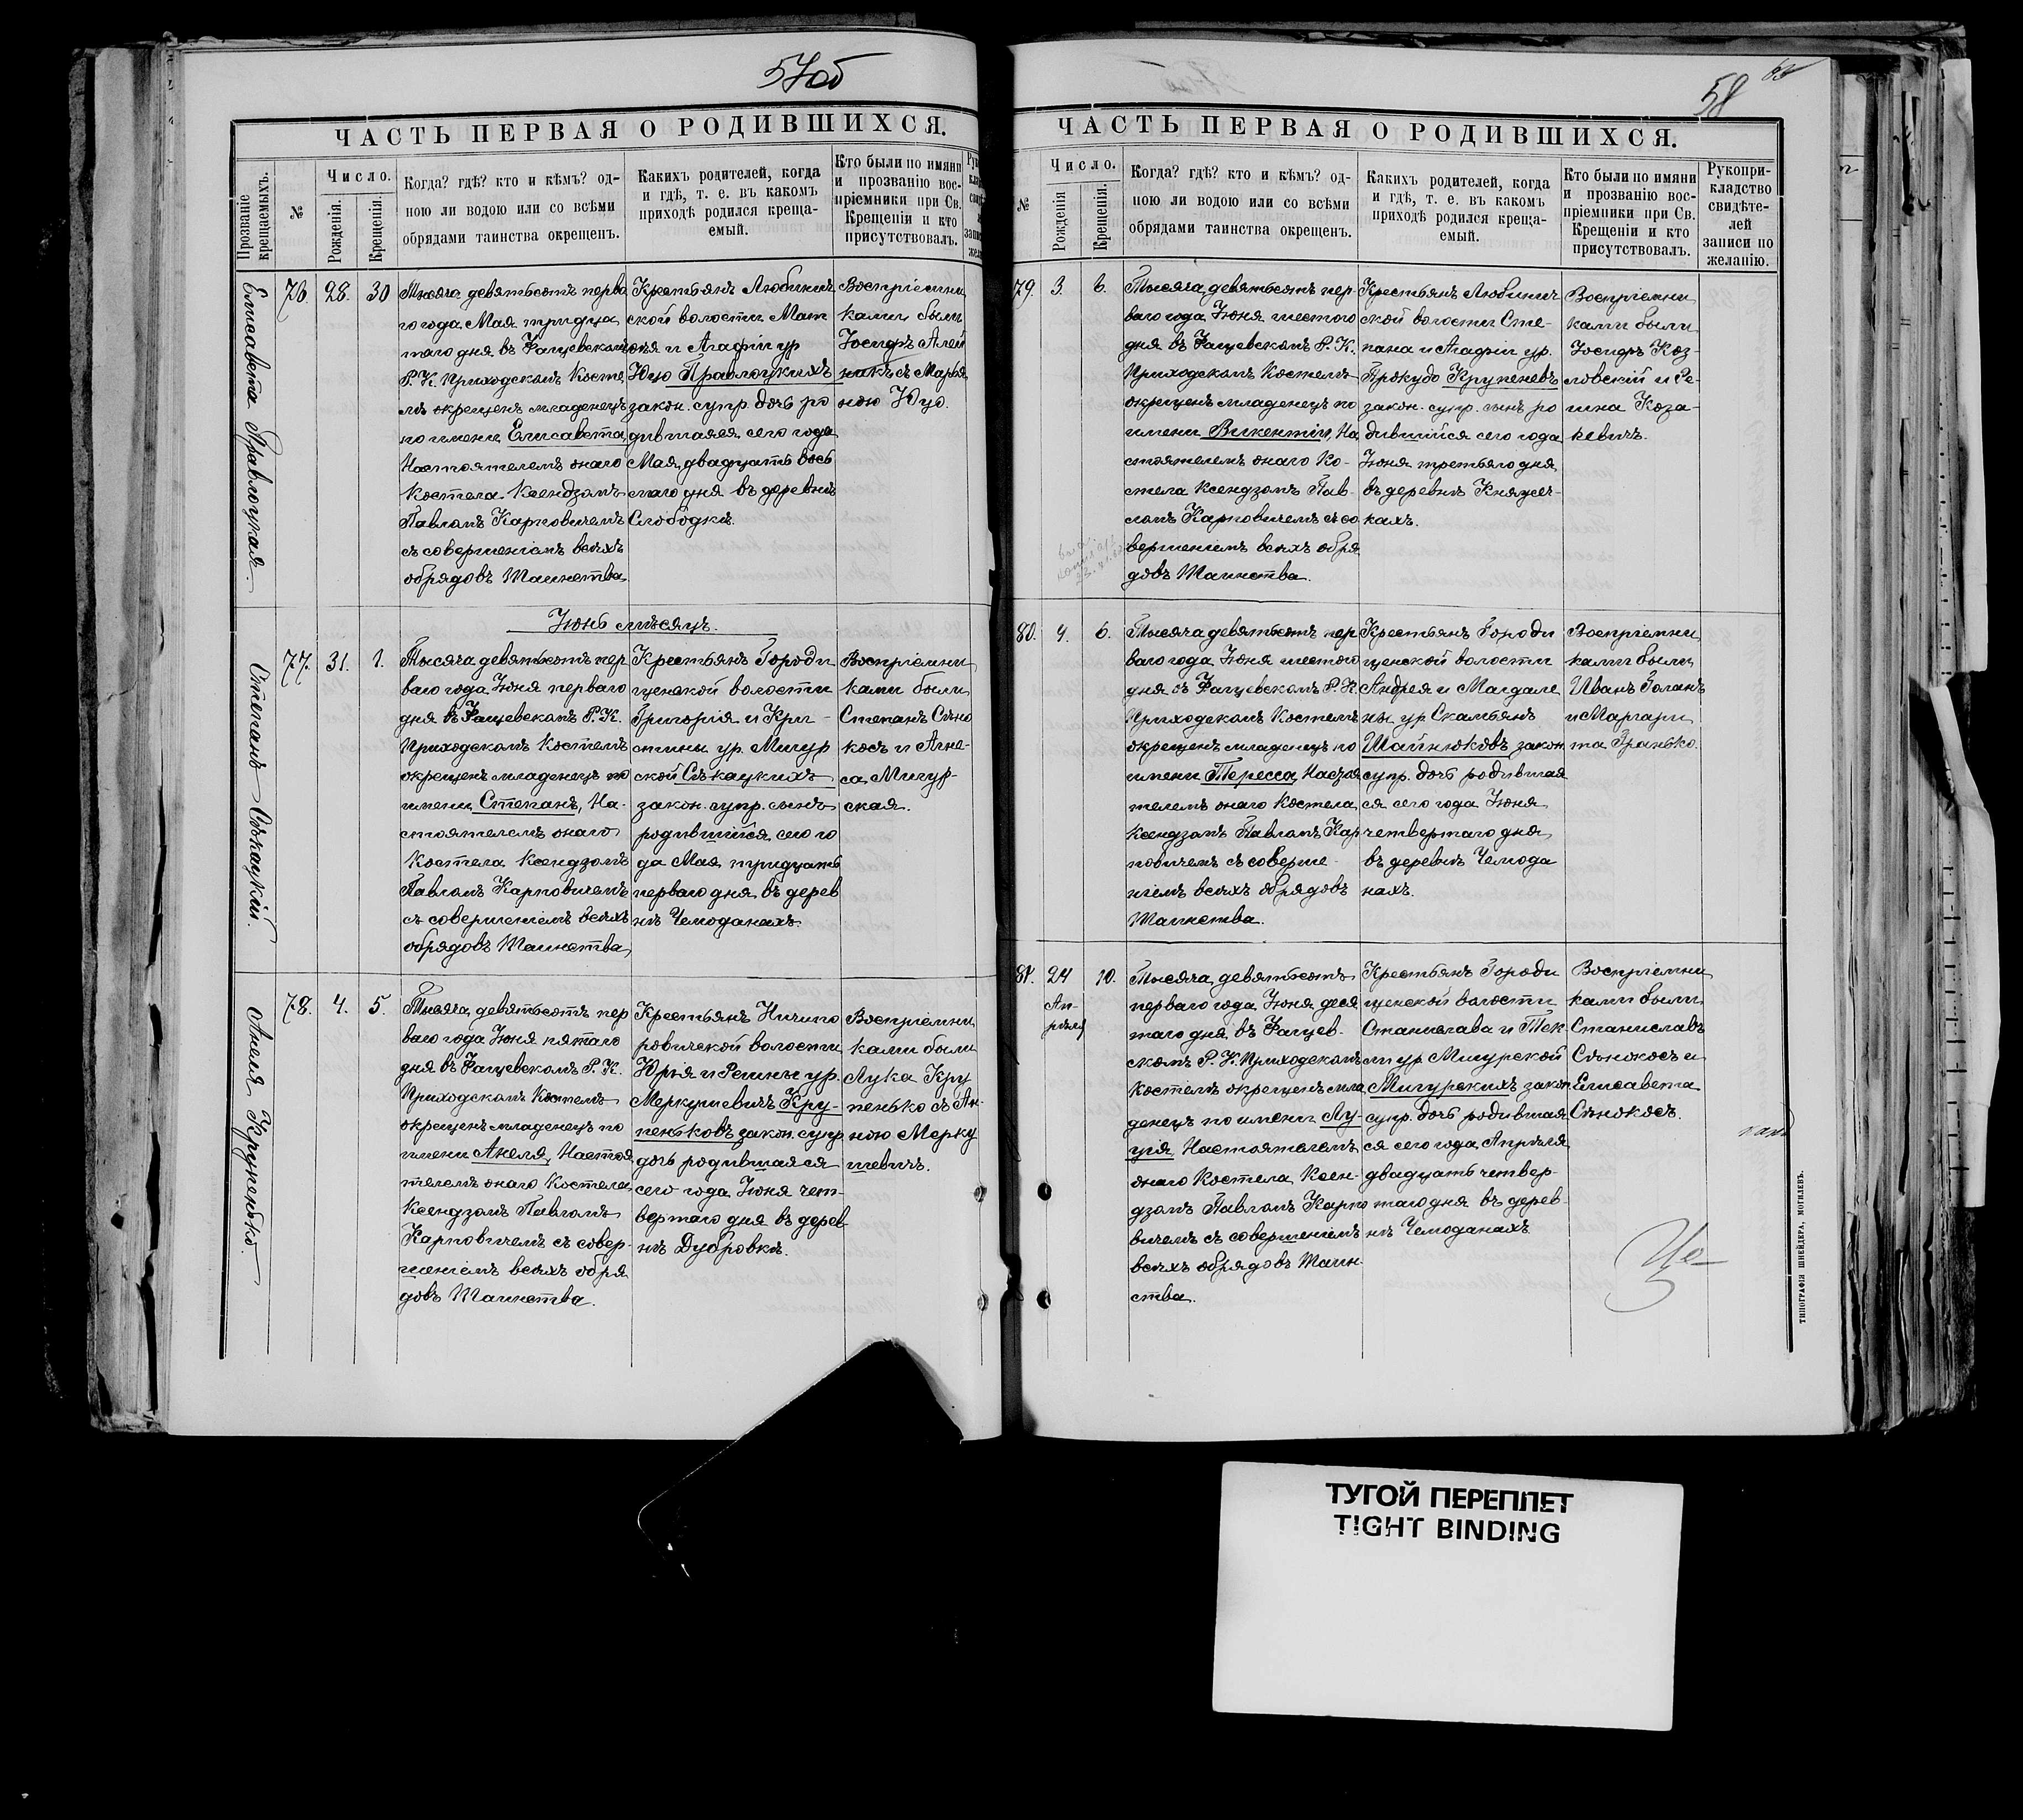 57об
ЧАСТЬ ПЕРВАЯ О РОДИВШИХСЯ.
Прозваніе крещаемыхъ.
№
Число.
Рожденія.
Крещенія.
Когда? гдѣ? кто и кѣмъ? од-
ною ли водою или со всѣми
обрядами таинства окрещенъ.
Какихъ родителей, когда
и гдѣ, т. е. въ какомъ
приходѣ родился креща-
емый.
Кто были по имяни
и прозванію вос-
пріемники при Св.
Крещеніи и кто
присутствовалъ.
Елисавета Правлоцкая.
76.
28.
30
Тысяча девятьсотъ перва
го года Мая тридца
таго дня въ Фащевскомъ
Р. К. Приходскомъ Косте
лѣ окрещенъ младенецъ
по имени Елисавета,
Настоятелемъ онаго
Костела Ксендзомъ
Павломъ Карповичемъ
съ совершеніемъ всѣхъ
обрядовъ Таинства
Крестьянъ Любинич
ской волости Мат
ѳея и Агафіи ур
Юцо Правлоцкихъ
закон. супр. дочь ро
дившаяся сего года
Мая двадцать вось
маго дня въ деревнѣ
Слободкѣ.
Воспріемни
ками были
Іосифъ Алей
никъ съ Марья
ною Юцо.
Іюнь мѣсяцъ.
Степанъ Сѣкацкій.
77.
31.
1.
Тысяча девятьсотъ пер
ваго года Іюня перваго
дня въ Фащевскомъ Р. К.
Приходскомъ Костелѣ
окрещенъ младенецъ по
имени Степанъ, На-
стоятелемъ онаго
Костела Ксендзомъ
Павломъ Карповичемъ
съ совершеніемъ всѣхъ
обрядовъ Таинства
Крестьянъ Городи
щенской волости
Григорія и Кри-
стины ур. Мигур
ской Сѣкацкихъ
закон. супр. сынъ
родившійся сего го
да Мая тридцать
перваго дня въ дерев
нѣ Чемоданахъ.
Воспріемни
ками были
Степанъ Сѣно
косъ и Агне-
са Мигур-
ская.
Анеля Крупенько.
78.
4.
5.
Тысяча девятьсотъ пер
ваго года Іюня пятаго
дня въ Фащевскомъ Р. К.
Приходскомъ Костелѣ
окрещенъ младенецъ по
имени Анеля, Настоя
телемъ онаго Костела
Ксендзомъ Павломъ
Карповичемъ съ совер-
шеніемъ всѣхъ обря
довъ Таинства.
Крестьянъ Ничипо
ровичской волости
Юрья и Регины ур.
Меркушевичъ Кру-
пеньковъ закон. супр
дочь родившаяся
сего года Іюня чет-
вертаго дня въ дерев-
нѣ Дубровкѣ.
Воспріемни
ками были
Лука Кру
пенько съ Ан-
ною Мерку
шевичъ.
58
ЧАСТЬ ПЕРВАЯ О РОДИВШИХСЯ.
№
Число.
Рожденія
Крещенія.
Когда? гдѣ? кто и кѣмъ? од-
ною ли водою или со всѣми
обрядами таинства окрещенъ.
Какихъ родителей, когда
и гдѣ, т. е. въ какомъ
приходѣ родился креща-
емый.
Кто были по имяни
и прозванію вос-
пріемники при Св.
Крещеніи и кто
присутствовалъ.
Рукопри-
кладство
свидѣте-
лей
записи по
желанію.
79.
3.
6.
Тысяча девятьсотъ пер-
ваго года Іюня шестого
дня въ Фащевскомъ Р. К.
Приходскомъ Костелѣ
окрещенъ младенецъ по
имени Викентій, На
стоятелемъ онаго Ко-
стела Ксендзомъ Пав-
ломъ Карповичемъ съ со
вершеніемъ всѣхъ обря
довъ Таинства.
Крестьянъ Любинич
ской волости Сте-
пана и Агафіи ур.
Прокудо Крупеневъ
закон. супр. сынъ ро
дившійся сего года
Іюня третьяго дня
въ деревнѣ Княжеч-
кахъ.
Воспріемни
ками были
Іосифъ Коз-
ловскій и Ре-
гина Коза-
кевичъ.
80.
4.
6.
Тысяча девятьсотъ пер
ваго года Іюня шестого
дня въ Фащевскомъ Р. К.
Приходскомъ Костелѣ
окрещенъ младенецъ по
имени Тересса, Настоя
телемъ онаго Костела
Ксендзомъ Павломъ Кар
повичемъ съ соверше-
ніемъ всѣхъ обрядовъ
Таинства.
Крестьянъ Городи
щенской волости
Андрея и Магдале
ны ур Скамьянъ
Шайнюковъ закон.
супр. дочь родившая
ся сего года Іюня
четвертаго дня
въ деревнѣ Чемода
нахъ.
Воспріемни
ками были
Иванъ Голанъ
и Маргари
та Гранько.
81.
24
Ап-
рѣля
10.
Тысяча девятьсотъ
перваго года Іюня деся
таго дня въ Фащев-
скомъ Р. К. Приходскомъ
Костелѣ окрещенъ мла
денецъ по имени Лу-
ція, Настоятелемъ
онаго Костела Ксен-
дзомъ Павломъ Карпо
вичемъ съ совершеніемъ
всѣхъ обрядовъ Таин-
ства.
Крестьянъ Городи
щенской волости
Станислава и Тек
ли ур Мигурской
Мигурскихъ закон
супр. дочь родившая
ся сего года Апрѣля
двадцать четвер-
таго дня въ дерев-
нѣ Чемоданахъ
Воспріемни
ками были
Станиславъ
Сѣнокосъ и
Елисавета
Сѣнокосъ.
ТИПОГРАФІЯ ШНЕЙДЕРА, МОГИЛЕВЪ.
ТУГОЙ ПЕРЕПЛЕТ
TIGHT BINDING